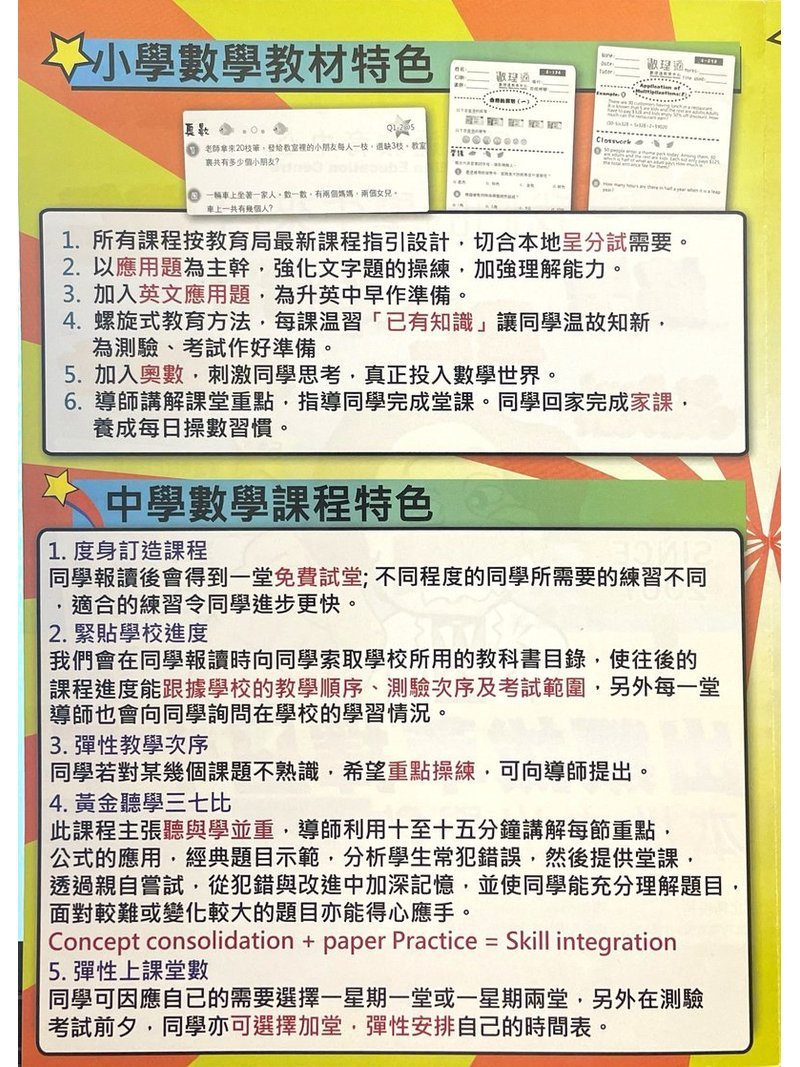 小學數學教材特色
夏歡
Q1-2@5
老師拿來20枝筆，發給教室裡的小朋友每人一枝，還缺3枝，教室
裏共有多少個小朋友？
一輛車上坐著一家人，數一數，有兩個媽媽，兩個女兒，
車上一共有幾個人？
數理通
Application of
Multiplications(2)
Classwork
1. 所有課程按教育局最新課程指引設計，切合本地呈分試需要。
2. 以應用題為主幹，強化文字題的操練，加強理解能力。
3. 加入英文應用題，為升英中早作準備。
4. 螺旋式教育方法，每課温習「已有知識」讓同學温故知新，
為測驗、考試作好準備。
5. 加入奧數，刺激同學思考，真正投入數學世界。
6. 導師講解課堂重點，指導同學完成堂課。同學回家完成家課，
養成每日操數習慣。
中學數學課程特色
1. 度身訂造課程
同學報讀後會得到一堂免費試堂; 不同程度的同學所需要的練習不同
，適合的練習令同學進步更快。
2. 緊貼學校進度
我們會在同學報讀時向同學索取學校所用的教科書目錄，使往後的
課程進度能跟據學校的教學順序、測驗次序及考試範圍，另外每一堂
導師也會向同學詢問在學校的學習情況。
3. 彈性教學次序
同學若對某幾個課題不熟識，希望重點操練，可向導師提出。
4. 黃金聽學三七比
此課程主張聽與學並重，導師利用十至十五分鐘講解每節重點，
公式的應用，經典題目示範，分析學生常犯錯誤，然後提供堂課，
透過親自嘗試，從犯錯與改進中加深記憶，並使同學能充分理解題目，
面對較難或變化較大的題目亦能得心應手。
Concept consolidation + paper Practice = Skill integration
5. 彈性上課堂數
同學可因應自已的需要選擇一星期一堂或一星期兩堂，另外在測驗
考試前夕，同學亦可選擇加堂，彈性安排自己的時間表。